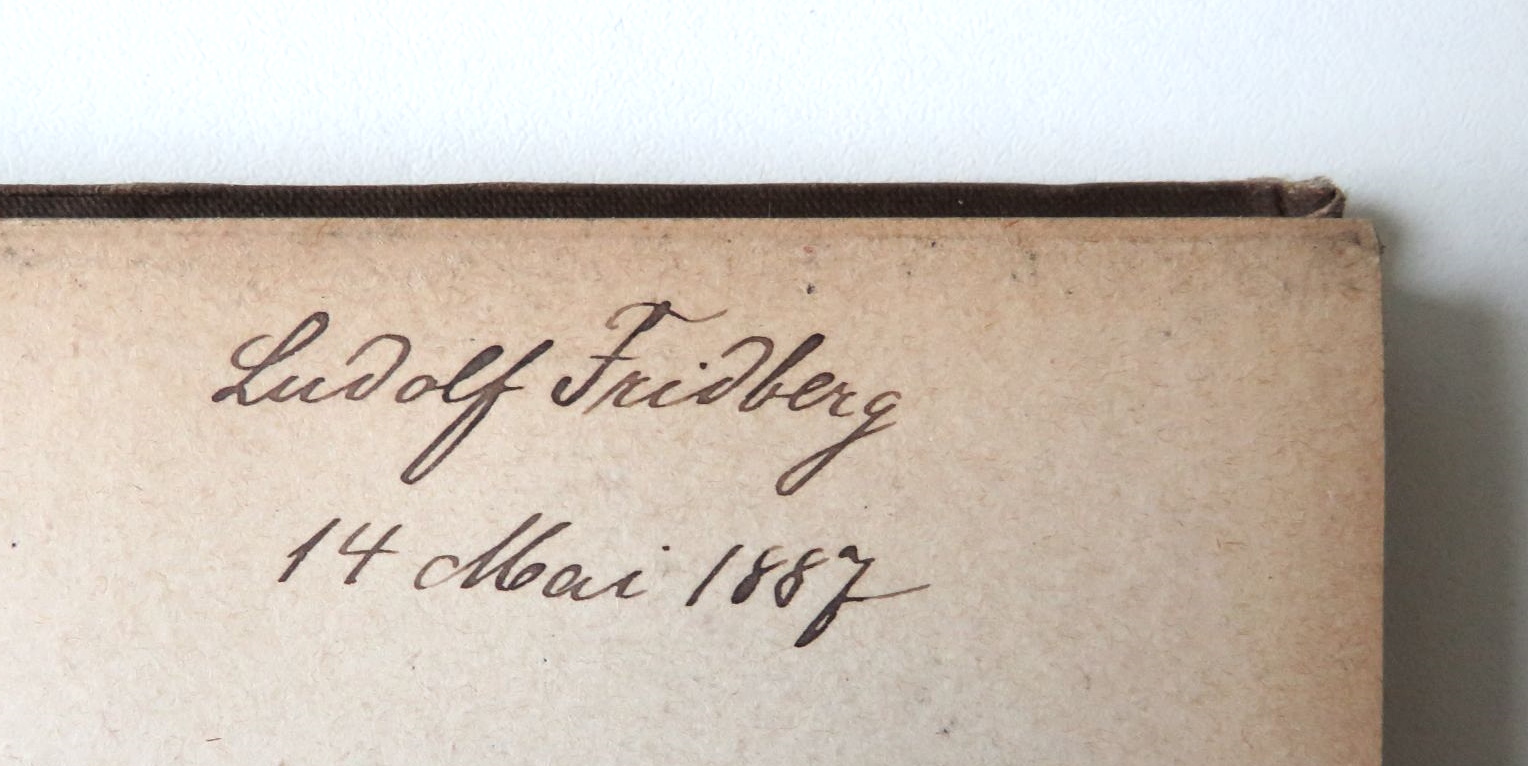 Ludolf Fridberg
14 Mai 1887